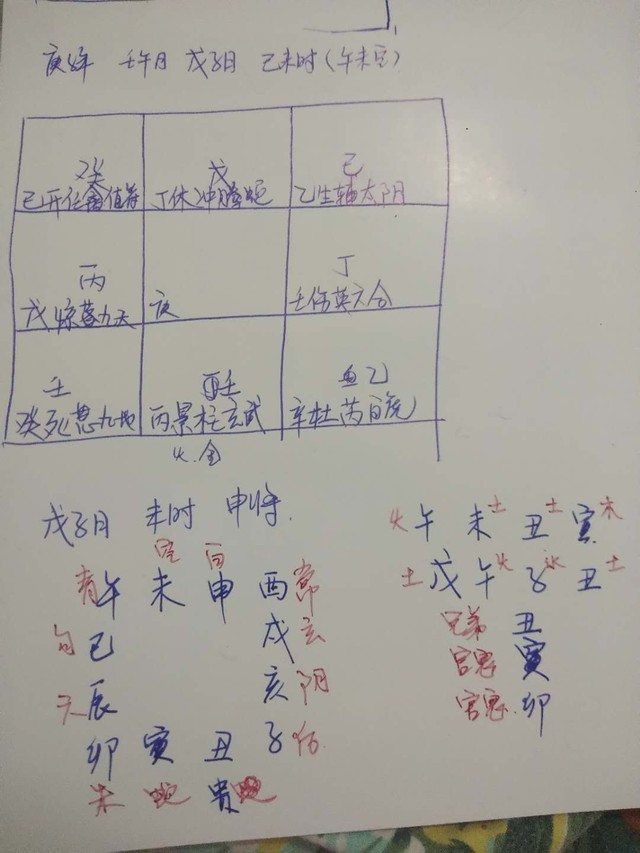 壬午月 戊子日 己未时(午未空)
癸 戊 己
己开任禽值符 丁休冲腾蛇 乙生辅太阴
丙 丁
戊惊蓬九天 庚 壬伤英六合
壬 壬 乙
癸死 九地 丙景柱玄武 辛杜芮白虎
火.金
戊子日 未时 申将.
火午 未土 丑土 寅木
土戊 午火 子水 丑土
空 白
青午 未 申 酉常
勾巳 戌玄
辰 亥阴
卯 寅 丑 子后
朱 蛇 贵
兄弟 丑
官鬼 寅
官鬼. 卯